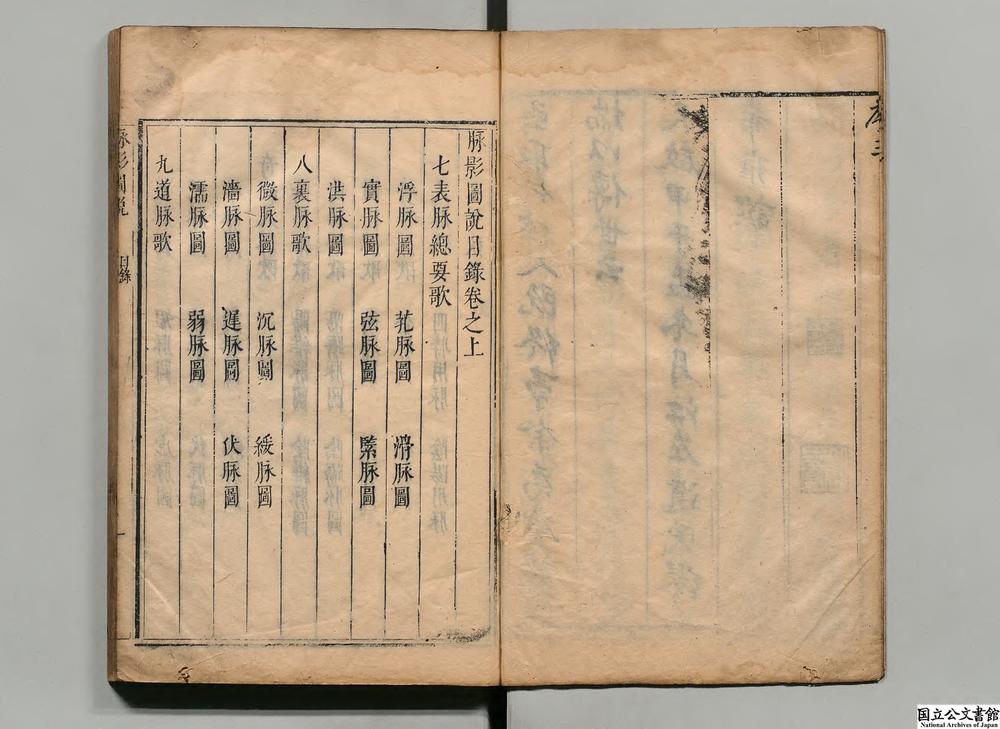 脉影圖說目錄卷之上
七表脉總要歌
浮脉圖 芤脉圖 滑脉圖
實脉圖 弦脉圖 緊脉圖
洪脉圖
八裏脉歌
微脉圖 沉脉圖 緩脉圖
濇脉圖 遲脉圖 伏脉圖
濡脉圖 弱脉圖
九道脉歌
脉影圖說 目錄 一
国立公文書館
National Archives of Japan